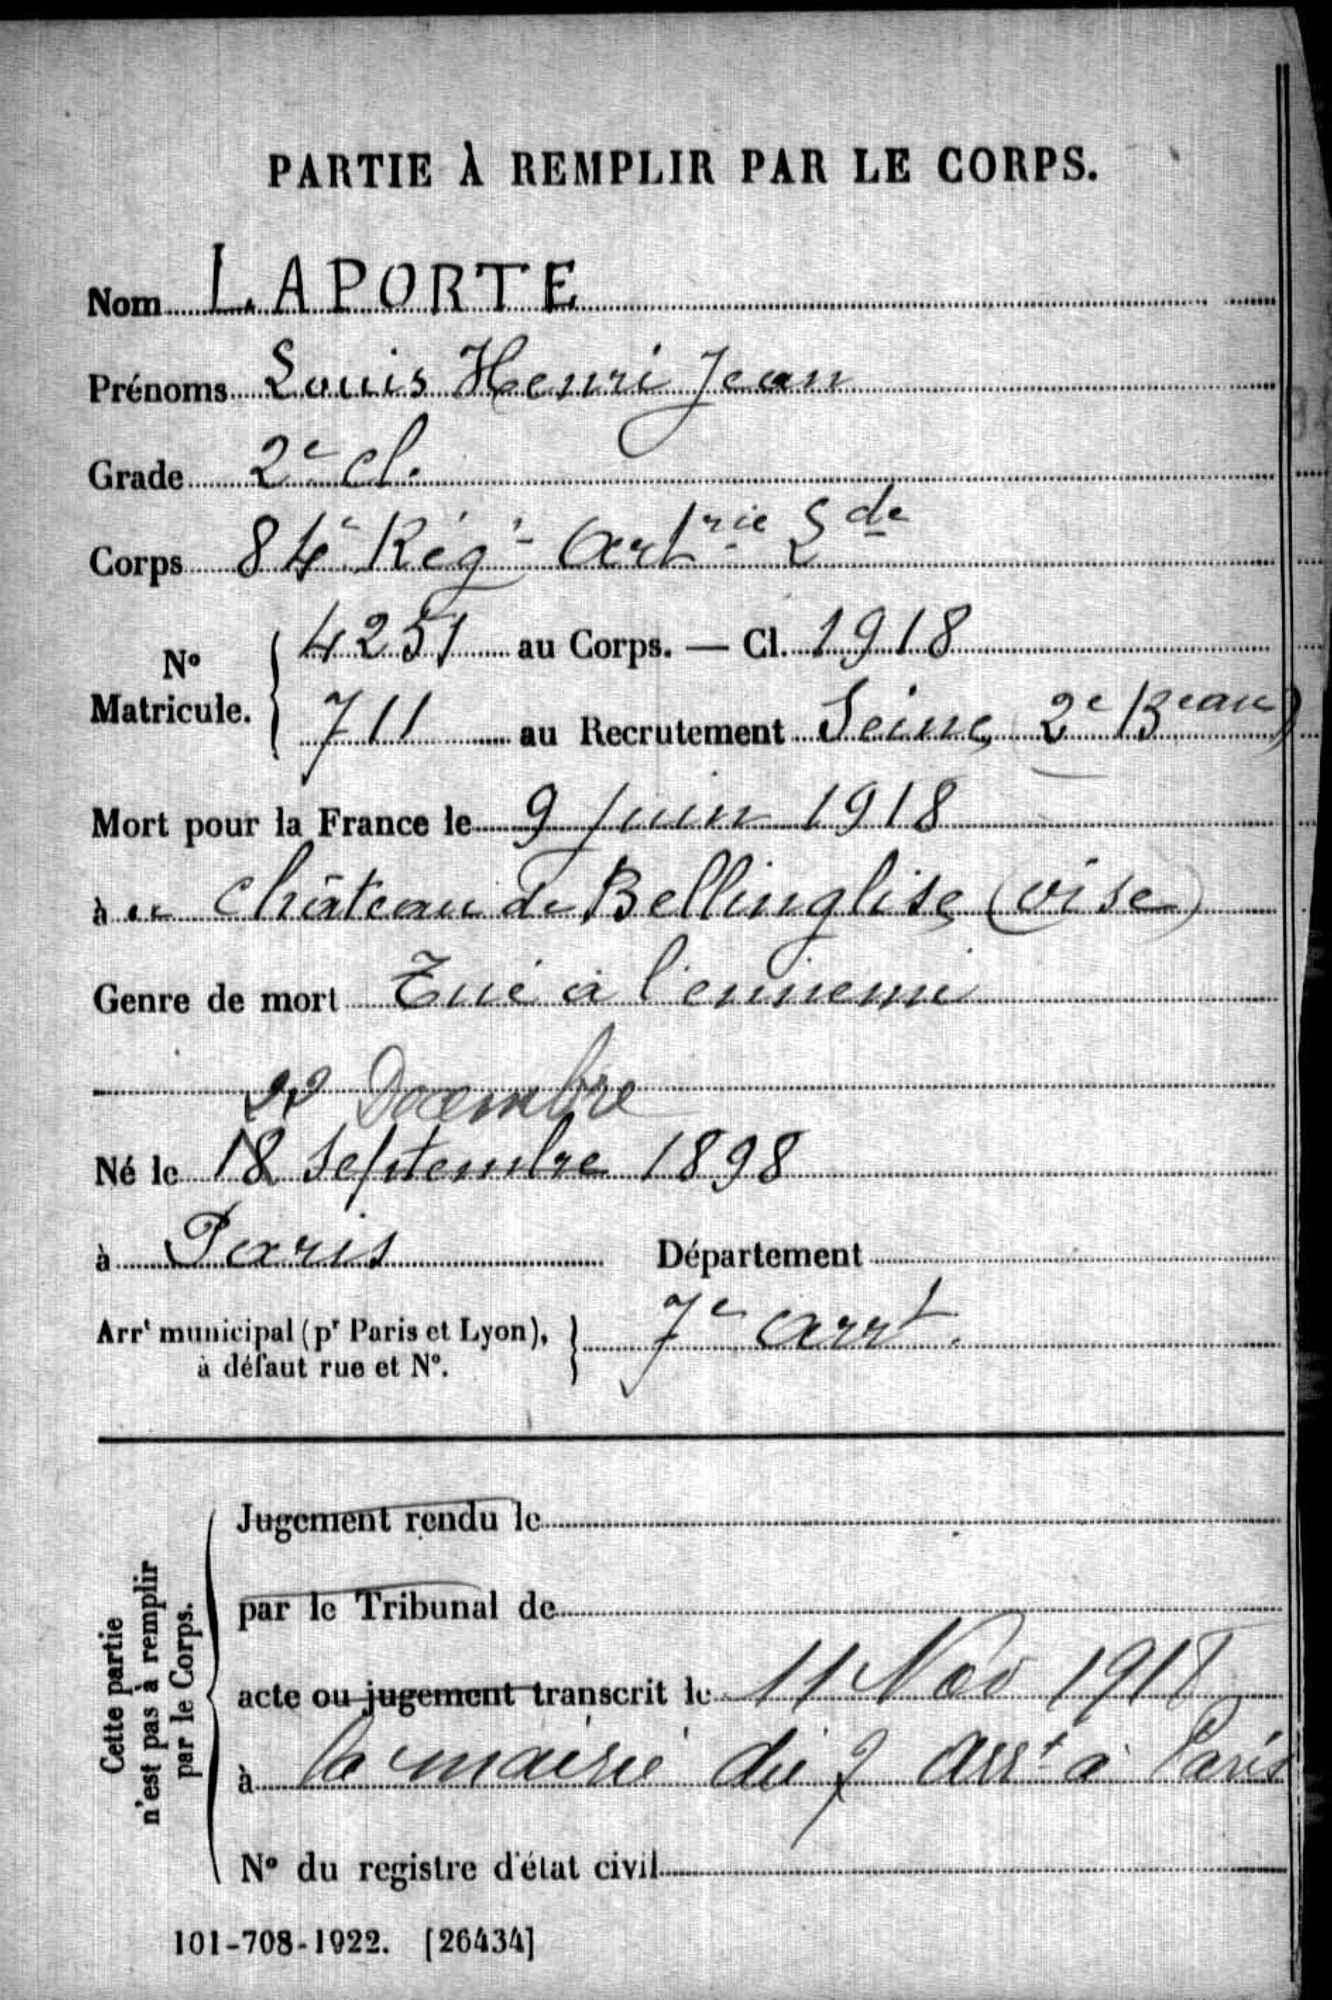 PARTIE À REMPLIR PAR LE CORPS.
Nom LAPORTE
Prénoms Louis Henri Jean
Grade 2e cl.
Corps 84e Régt Artrie Lde
No Matricule. 4251 au Corps. — Cl. 1918
711 au Recrutement Seine (2e Beau)
Mort pour la France le 9 Juin 1918
à au Château de Bellinglise (Oise)
Genre de mort Tué à l'ennemi
22 Décembre
Né le 18 Septembre 1898
à Paris Département
Arrt municipal (pr Paris et Lyon), à défaut rue et No. 7e arrt.
Cette partie n'est pas à remplir par le Corps.
Jugement rendu le
par le Tribunal de
acte ou jugement transcrit le 11 Nov 1918
à la mairie du 7 Arrt à Paris
No du registre d'état civil
101-708-1922. [26434]